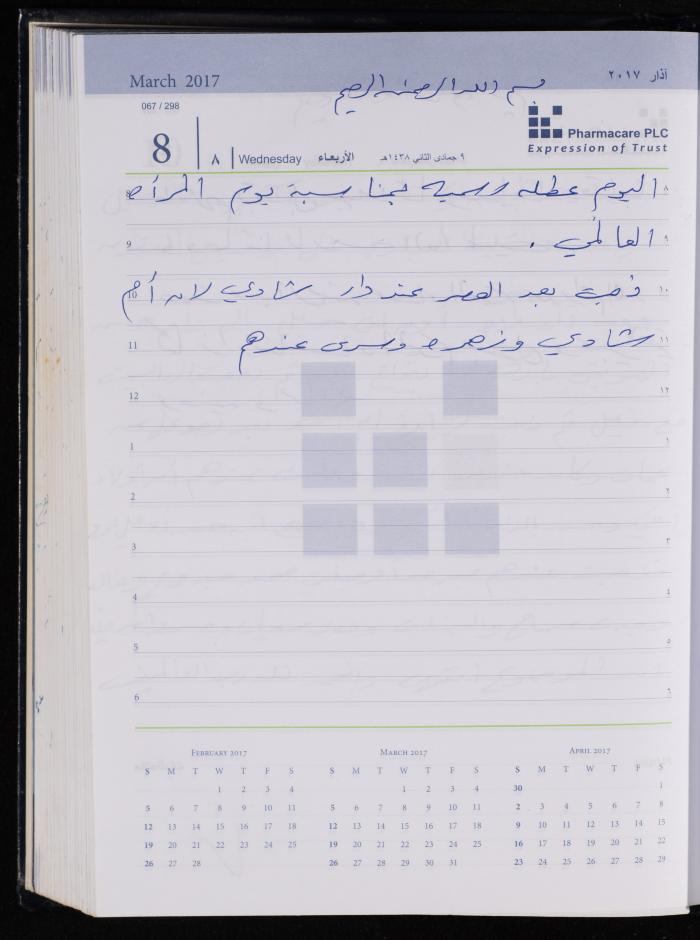 March 2017 آذار ٢٠١٧
بسم الله الرحمن الرحيم
067 / 298
8 ٨ Wednesday الأربعاء ٩ جمادى الثاني ١٤٣٨هـ
Pharmacare PLC
Expression of Trust
8 اليوم عطله رسميه بمناسبة يوم المرأه ٨
9 العالمي . ٩
10 ذهبت بعد العصر عند دار شادي لانه أم ١٠
11 شادي وزهره ويسرى عندهم ١١
12 ١٢
1 ١
2 ٢
3 ٣
4 ٤
5 ٥
6 ٦
FEBRUARY 2017
S M T W T F S
1 2 3 4
5 6 7 8 9 10 11
12 13 14 15 16 17 18
19 20 21 22 23 24 25
26 27 28
MARCH 2017
S M T W T F S
1 2 3 4
5 6 7 8 9 10 11
12 13 14 15 16 17 18
19 20 21 22 23 24 25
26 27 28 29 30 31
APRIL 2017
S M T W T F S
30 1
2 3 4 5 6 7 8
9 10 11 12 13 14 15
16 17 18 19 20 21 22
23 24 25 26 27 28 29